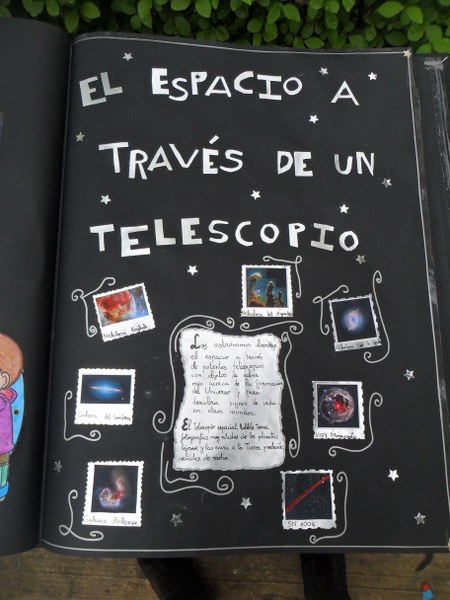 EL ESPACIO A
TRAVÉS DE UN
TELESCOPIO
Los astrónomos
el espacio a través
de potentes telescopios
con objeto de saber
más acerca de la formación
del Universo y para
descubrir signos de vida
en otros mundos.
El telescopio espacial Hubble toma
fotografías muy nítidas de los planetas
lejanos y las envía a la Tierra mediante
señales de radio.
Nebulosa
Nebulosa del Aguila
Nebulosa
Galaxia del Sombrero
Galaxia Antenas
SN 1006